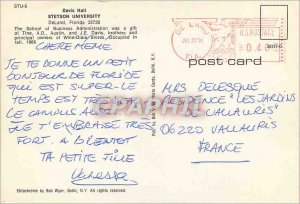 STU-6
Davis Hall
STETSON UNIVERSITY
DeLand, Florida 32720
The School of Business Administration was a gift
of Tine, A.D. Austin, and J.E. Davis, brothers and
principal owners of Winn-Dixie Stores. Occupied in
fall, 1966
DE LAND
U.S. POSTAGE
post card
CHERE MEME
JE TE DONNE UN PETIT
BONJOUR DE FLORIDE
QUI EST SUPER. LE
TEMPS EST TRES
LE CAMPUS AUSSI
JE T'EMBRASSE TRES
FORT. A BIENTOT
TA PETITE FILLE
MRS DELESQUE
RESIDENCE "LES JARDINS
DE VALLAURIS"
06220 VALLAURIS
FRANCE
Ektachrome by Bob Wyer, Delhi, N.Y. All rights reserved